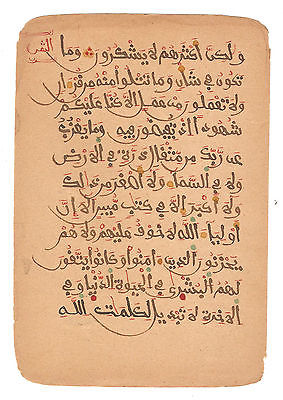 الثمن
ولكن اكثرهم لا يشكرون وما
تكون في شأن وما تتلوا منه من قرءان
ولا تعملون من عمل الا كنا عليكم
شهودا اذ تفيضون فيه وما يعزب
عن ربك من مثقال ذرة في الارض
ولا في السماء ولا اصغر من ذلك
ولا اكبر الا في كتب مبين الا ان
اولياء الله لا خوف عليهم ولا هم
يحزنون الذين ءامنوا وكانوا يتقون
لهم البشرى في الحيوة الدنيا وفي
الاخرة لا تبديل لكلمت الله